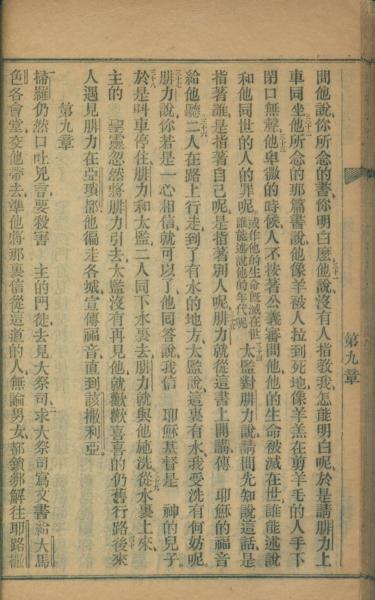 第九章
間他說、你所念的書、你明白麼、他說、沒有人指敎我、怎能明白呢、於是請腓力上
車同坐、他所念的那篇書說、他像羊被人拉到死地、像羊羔在剪羊毛的人手下
閉口無聲、他卑微的時候、人不按著公義審問他、他的生命被滅在世、誰能述說
和他同世的人的罪呢、或作他的生命旣滅在世誰能述說他的年代呢 太監對腓力說、請問先知說這話、是
指著誰、是指著自己呢、是指著別人呢、腓力就從這書上開講、傳 耶穌的福音
給他聽、二人在路上行走、到了有水的地方、太監說、這裏有水、我受洗有何妨呢、
腓力說、你若是一心相信、就可以了、他回答說、我信 耶穌基督是 神的兒子、
於是叫車停住、腓力和太監二人同下水裏去、腓力就與他施洗、從水裏上來、
主的 聖靈忽然將腓力引去、太監沒有再見他、就歡歡喜喜的仍舊行路、後來
人遇見腓力在亞瑣都、他徧走各城、宣傳福音、直到該撒利亞、
第九章
掃羅仍然口吐兇言、要殺害 主的門徒、去見大祭司、求大祭司寫文書、給大馬
色各會堂、交他帶去、準他將那裏信從這道的人、無論男女、都鎖綁解往耶路撒